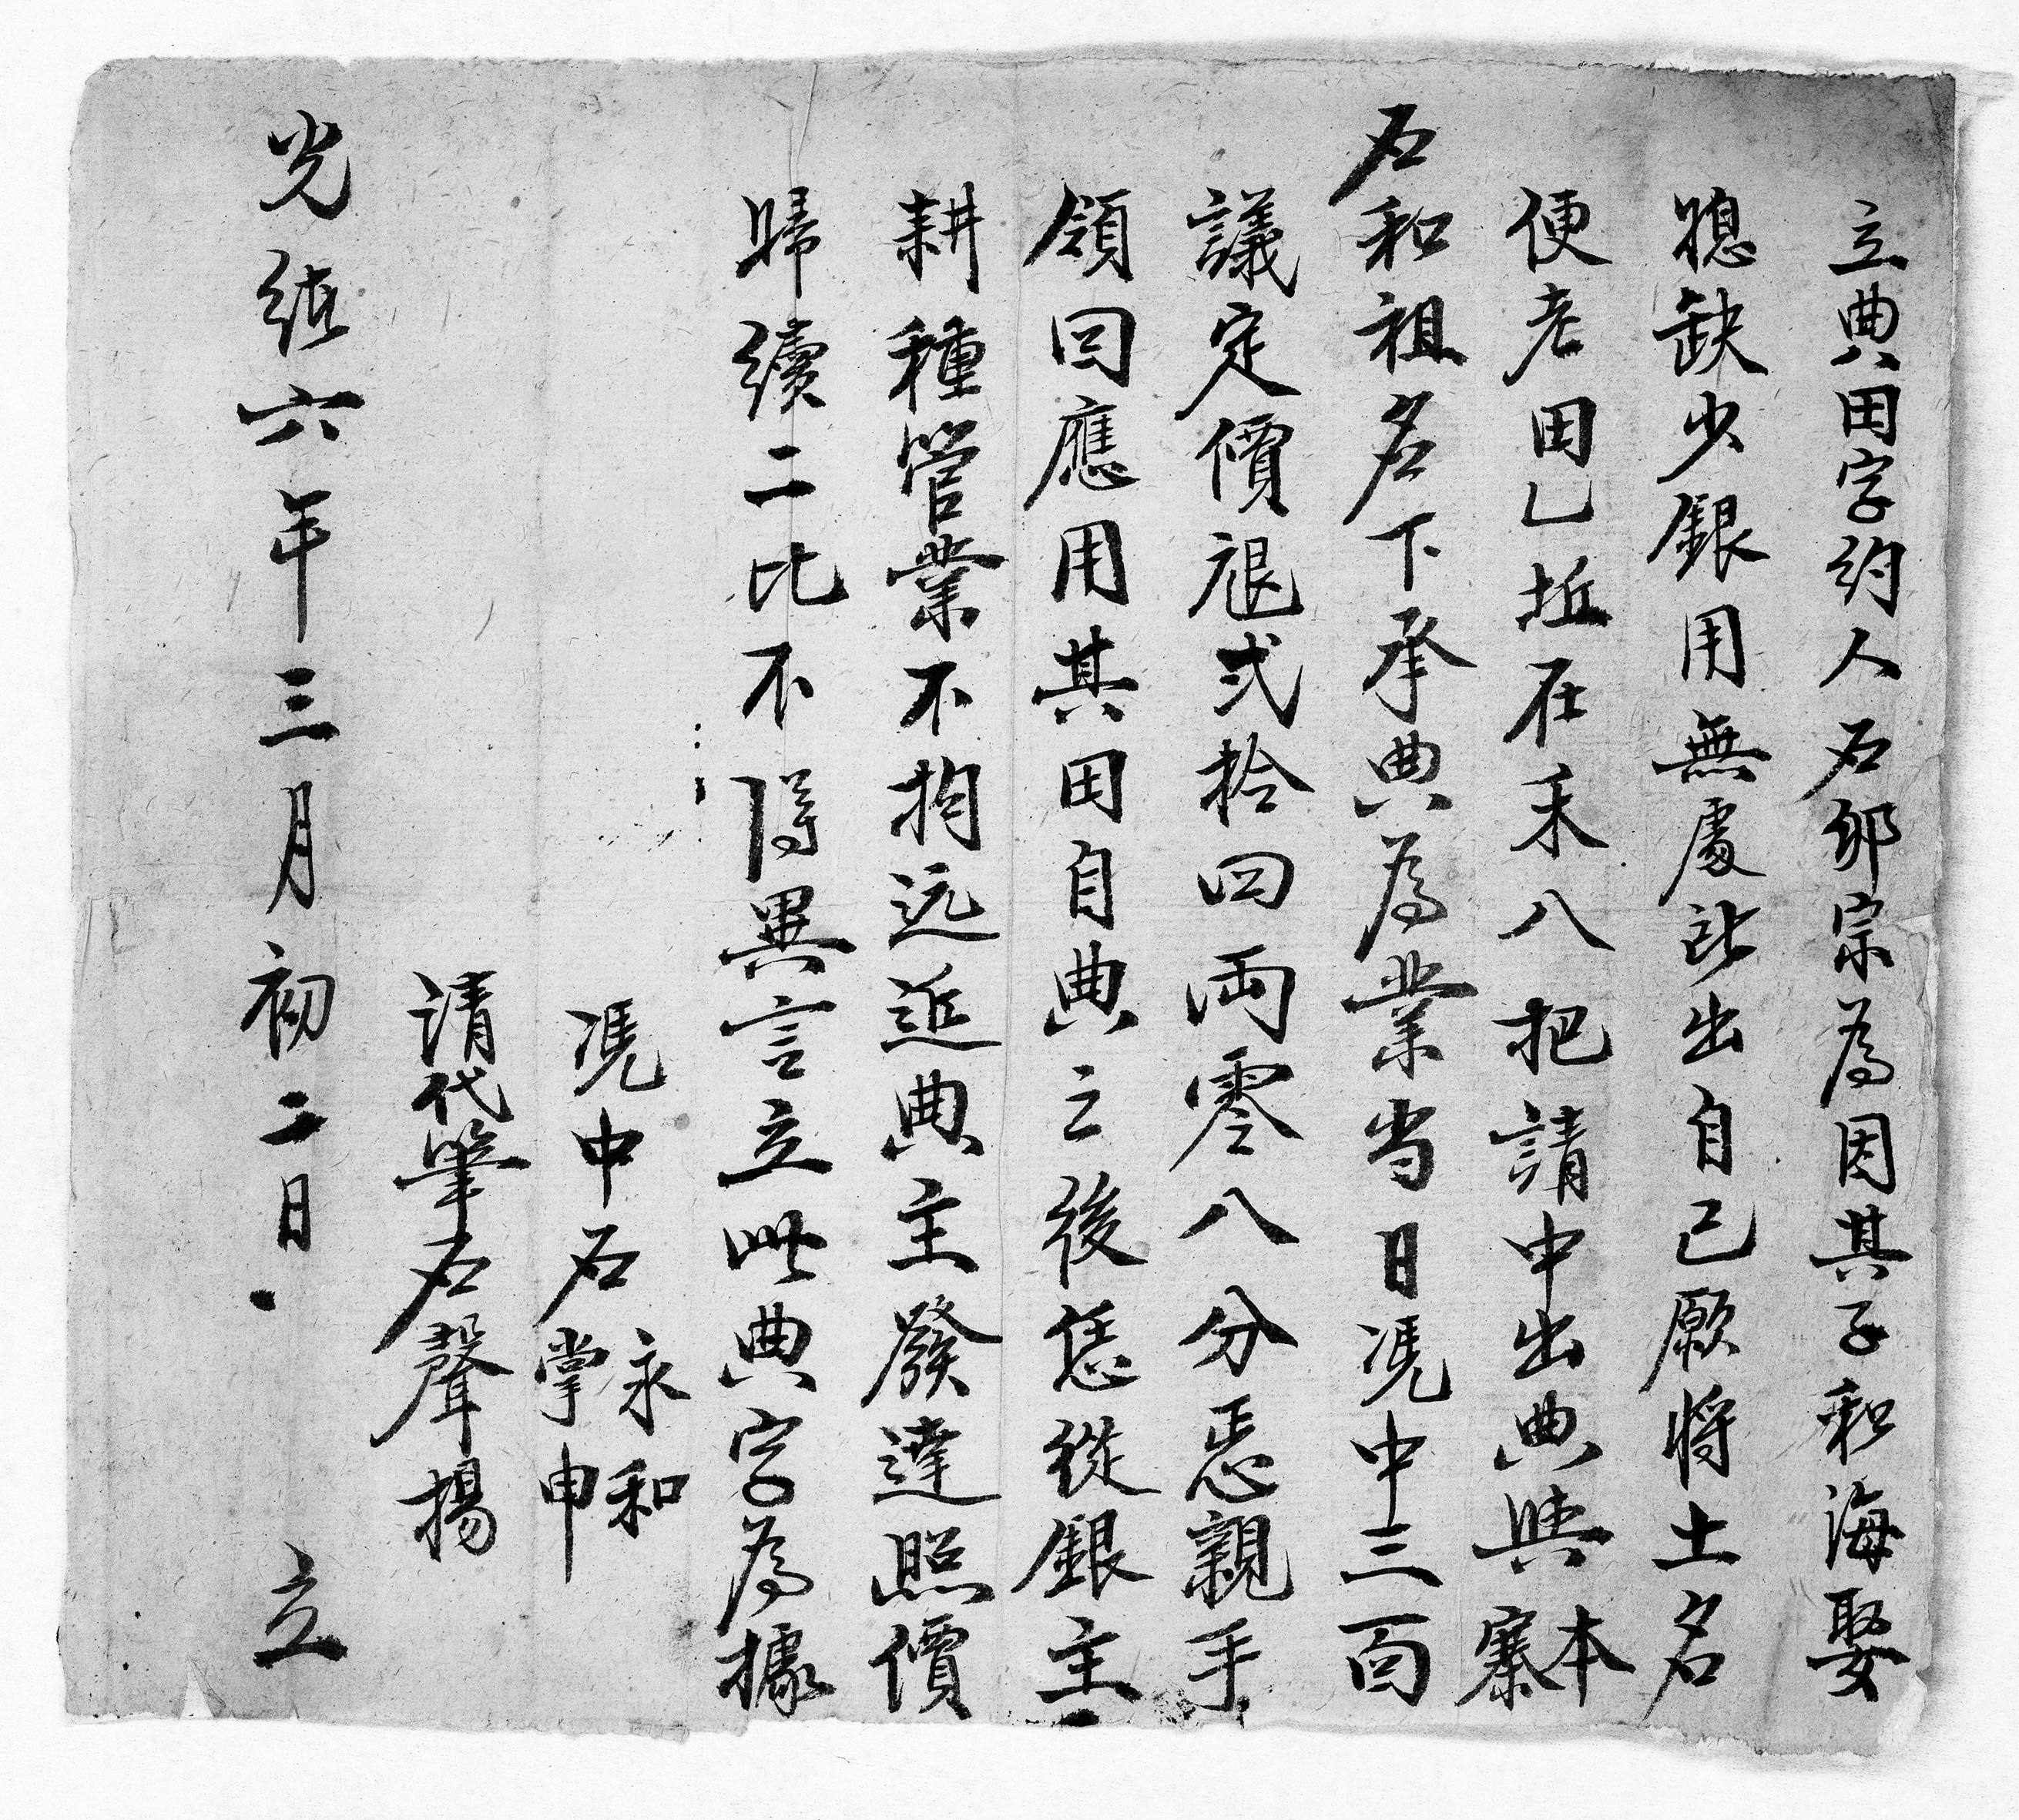 立典田字約人石邦宗為因其子和海娶
媳缺少銀用無處所出自己願将土名
便老田乚坵在禾八把請中出典與本寨
石和祖名下承典為業当日凴中三面
議定價銀弍拾四両零八分恁親手
領囘應用其田自典之後恁從銀主
耕種管業不拘远近典主發達照價
歸續二比不得異言立此典字為據
凴中石永和
掌申
请代筆石聲揚
光緒六年三月初二日 立